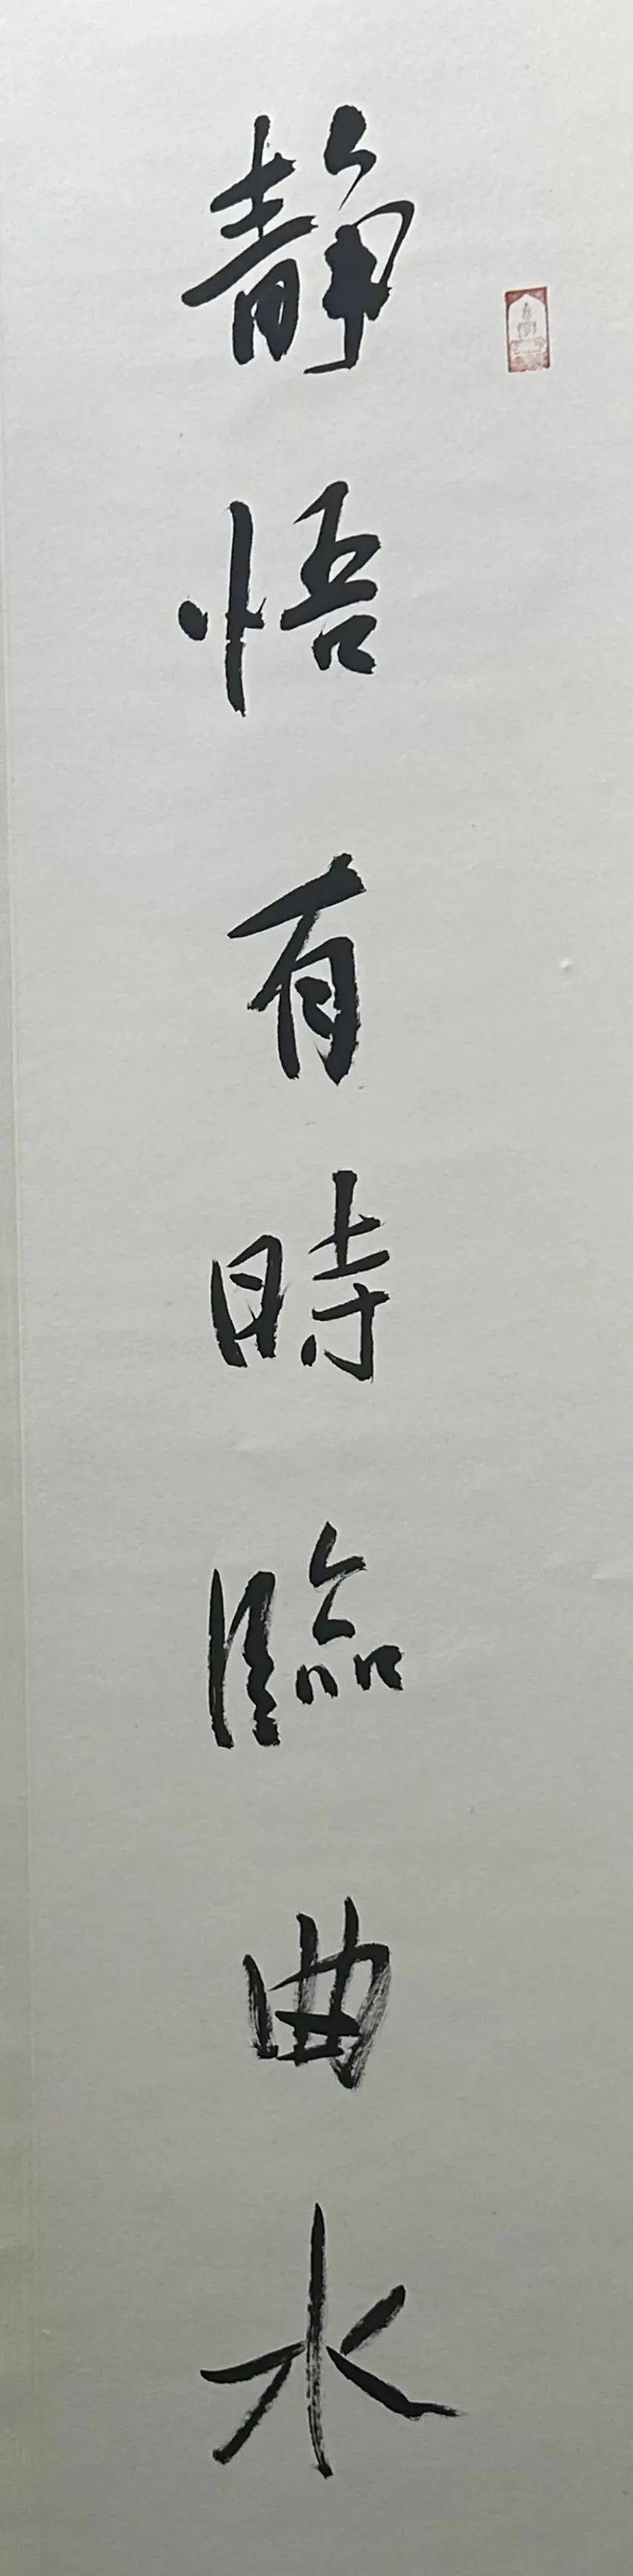 靜悟有時臨曲水